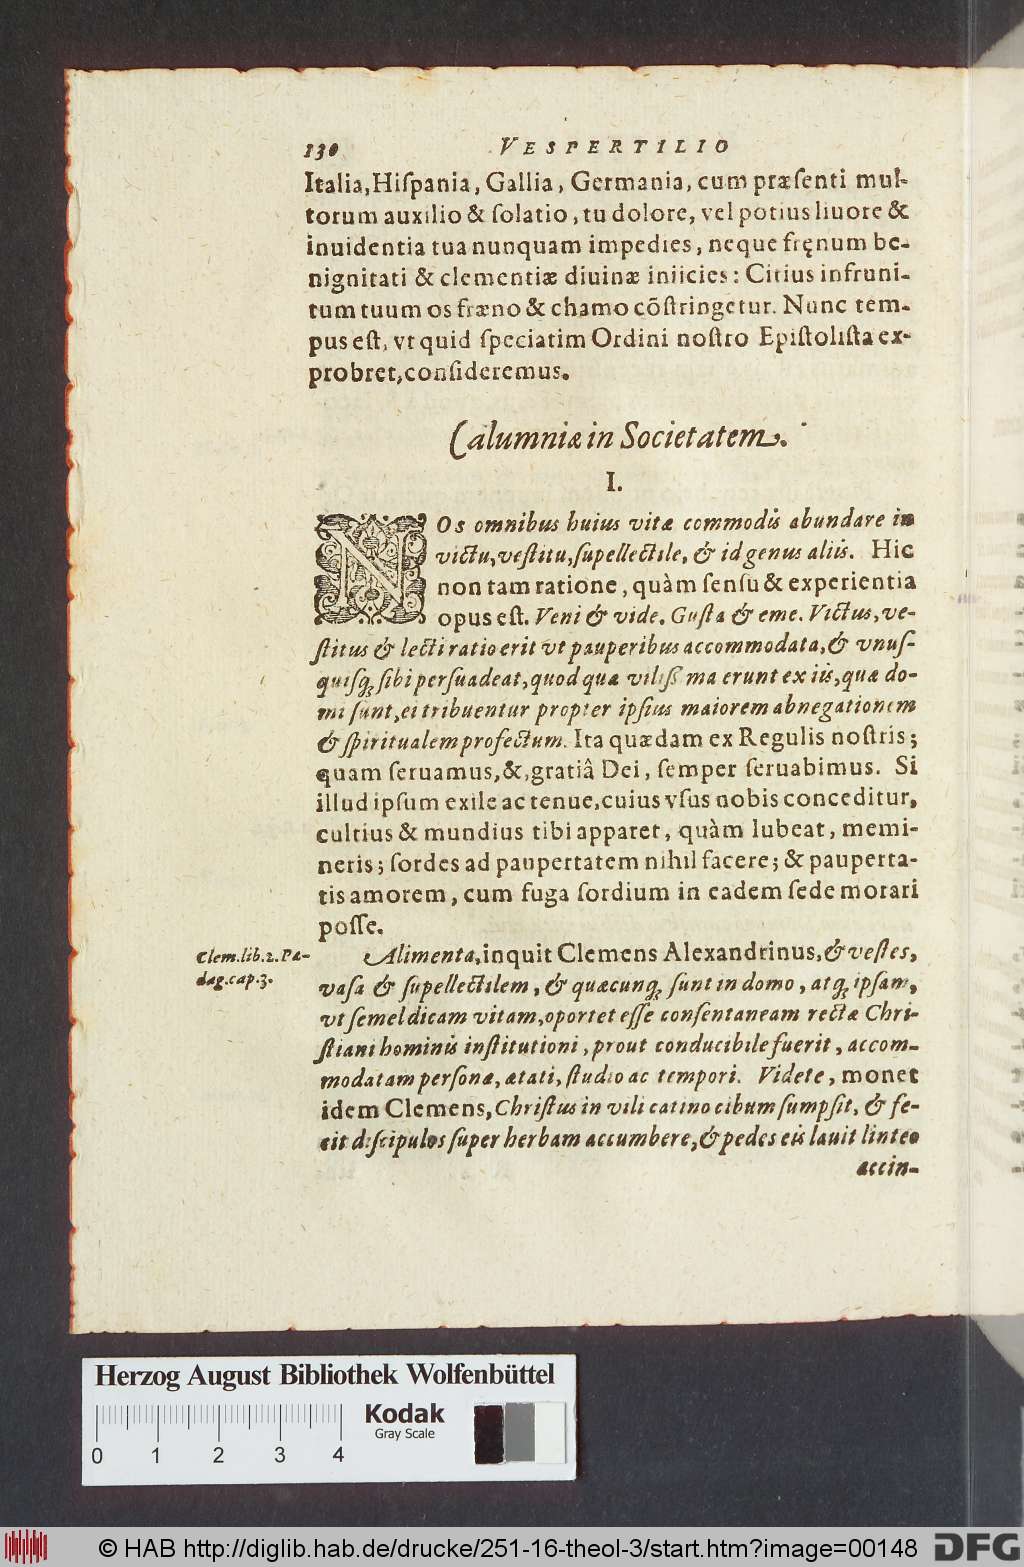 130 VESPERTILIO
Italia, Hiſpania, Gallia, Germania, cum præſenti mul-
torum auxilio & ſolatio, tu dolore, vel potius liuore &
inuidentia tua nunquam impedies, neque fręnum be-
nignitati & clementiæ diuinæ iniicies: Citius infruni-
tum tuum os fræno & chamo cõſtringetur. Nunc tem-
pus eſt, vt quid ſpeciatim Ordini noſtro Epiſtoliſta ex-
probret, conſideremus.
Calumniæ in Societatem.
I.
NOs omnibus huius vitæ commodis abundare in
victu, veſtitu, ſupellectile, & id genus aliis. Hic
non tam ratione, quàm ſenſu & experientia
opus eſt. Veni & vide. Guſta & eme. Victus, ve-
ſtitus & lecti ratio erit vt pauperibus accommodata, & vnuſ-
quiſq; ſibi perſuadeat, quod quæ viliſſima erunt ex iis, quæ do-
mi ſunt, ei tribuentur propter ipſius maiorem abnegationem
& ſpiritualem profectum. Ita quædam ex Regulis noſtris;
quam ſeruamus, &, gratiâ Dei, ſemper ſeruabimus. Si
illud ipſum exile ac tenue, cuius vſus nobis conceditur,
cultius & mundius tibi apparet, quàm lubeat, memi-
neris; ſordes ad paupertatem nihil facere; & pauperta-
tis amorem, cum fuga ſordium in eadem ſede morari
poſſe.
Clem. lib. 2. Pæ-
dag. cap. 3.
Alimenta, inquit Clemens Alexandrinus, & veſtes,
vaſa & ſupellectilem, & quæcunq; ſunt in domo, atq; ipſam,
vt ſemel dicam vitam, oportet eſſe conſentaneam rectæ Chri-
ſtiani hominis inſtitutioni, prout conducibile fuerit, accom-
modatam perſonæ, ætati, ſtudio ac tempori. Videte, monet
idem Clemens, Chriſtus in vili catino cibum ſumpſit, & fe-
cit diſcipulos ſuper herbam accumbere, & pedes eis lauit linteo
accin-
Herzog August Bibliothek Wolfenbüttel
Kodak
Gray Scale
0 1 2 3 4
© HAB http://diglib.hab.de/drucke/251-16-theol-3/start.htm?image=00148
DFG